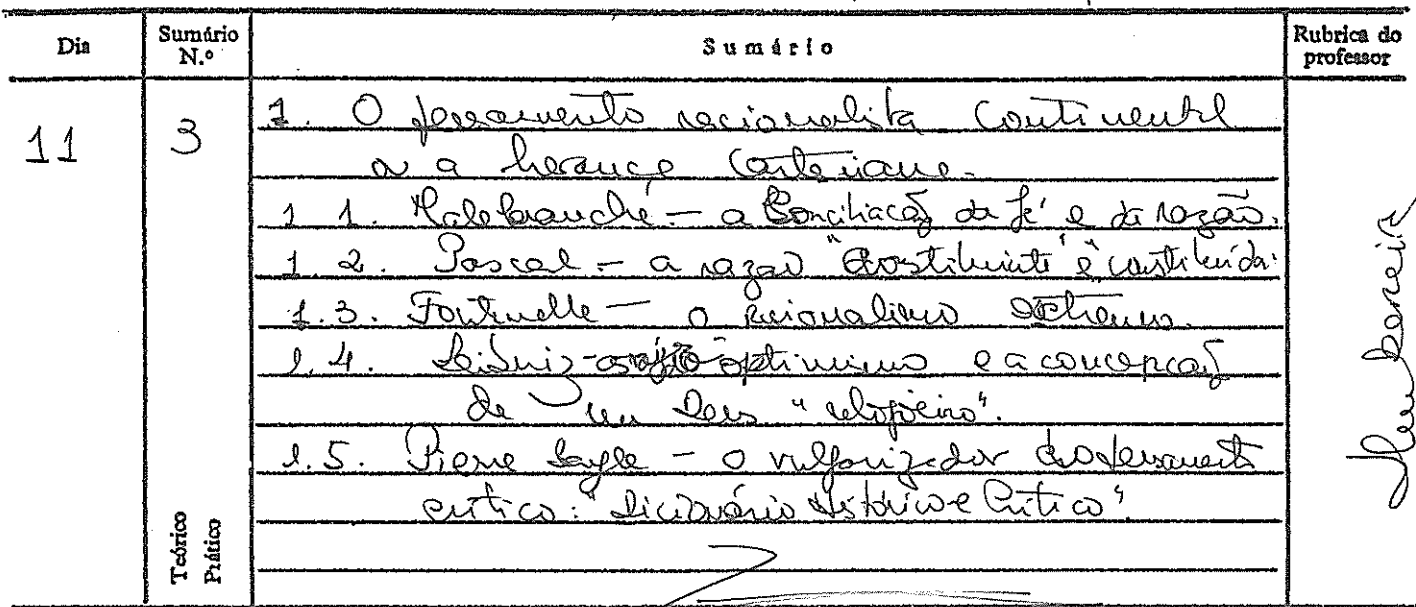 Dia Sumário N.º Sumário Rubrica do professor
11 3 1. O pensamento racionalista continental
e a herança cartesiana.
1 1. Malebranche - a Conciliação da fé e da razão.
1 2. Pascal - a razão "constituinte" e constituída.
1.3. Fontenelle - o racionalismo extremo.
1.4. Leibniz - optimismo e a concepção
de um Deus "relojoeiro".
1.5. Pierre Bayle - o vulgarizador do pensamento
crítico: "Dicionário Histórico e Crítico"
Teórico
Prático